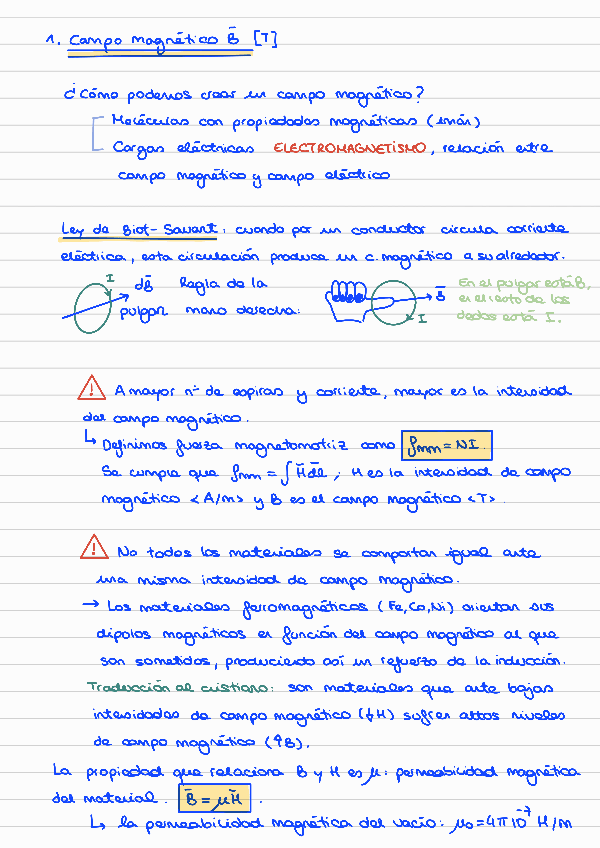 1. Campo magnético B̄ [T]
¿Cómo podemos crear un campo magnético?
Moléculas con propiedades magnéticas (imán)
Cargas eléctricas ELECTROMAGNETISMO, relación entre
campo magnético y campo eléctrico
Ley de Biot-Savart: cuando por un conductor circula corriente
eléctrica, esta circulación produce un c. magnético a su alrededor.
I
dB̄ Regla de la
pulgar mano derecha:
B̄
I
En el pulgar está B,
en el resto de los
dedos está I.
A mayor nº de espiras y corriente, mayor es la intensidad
del campo magnético.
↳ Definimos fuerza magnetomotriz como fmm = NI.
Se cumple que fmm = ∫ H̄ dl̄ ; H es la intensidad de campo
magnético <A/m> y B es el campo magnético <T>.
No todos los materiales se comportan igual ante
una misma intensidad de campo magnético.
→ Los materiales ferromagnéticos (Fe, Co, Ni) orientan sus
dipolos magnéticos en función del campo magnético al que
son sometidos, produciendo así un refuerzo de la inducción.
Traducción al cristiano: son materiales que ante bajas
intensidades de campo magnético (↓H) sufren altos niveles
de campo magnético (↑B).
La propiedad que relaciona B y H es μ: permeabilidad magnética
del material. B̄ = μH̄.
↳ la permeabilidad magnética del vacío: μ₀ = 4π10⁻⁷ H/m